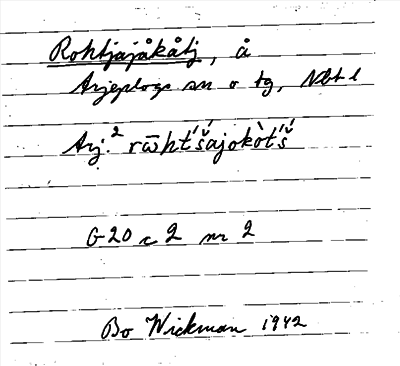 Rohtjajåkåtj, å
Arjeplogs sn o tg, Nbt l
Arj.² rω̄htʹšʹajokòtʹšʹ
G 20 c 2 nr 2
Bo Wickman 1942